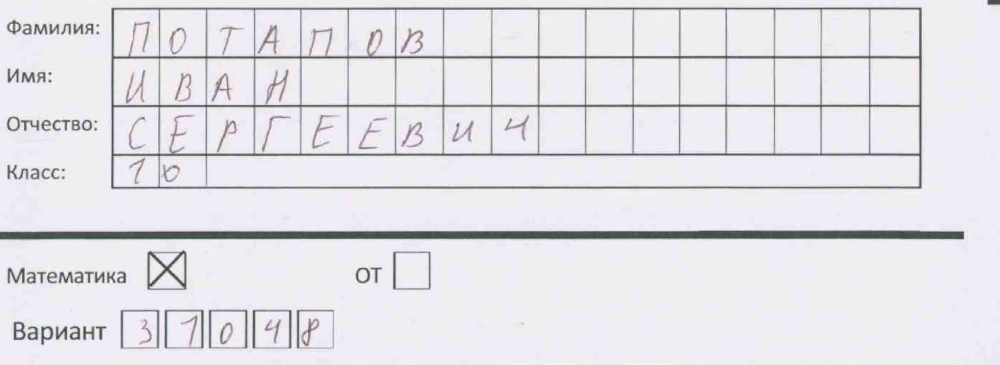 Фамилия: ПОТАПОВ
Имя: ИВАН
Отчество: СЕРГЕЕВИЧ
Класс: 10
Математика ☒ ОТ ☐
Вариант 31048